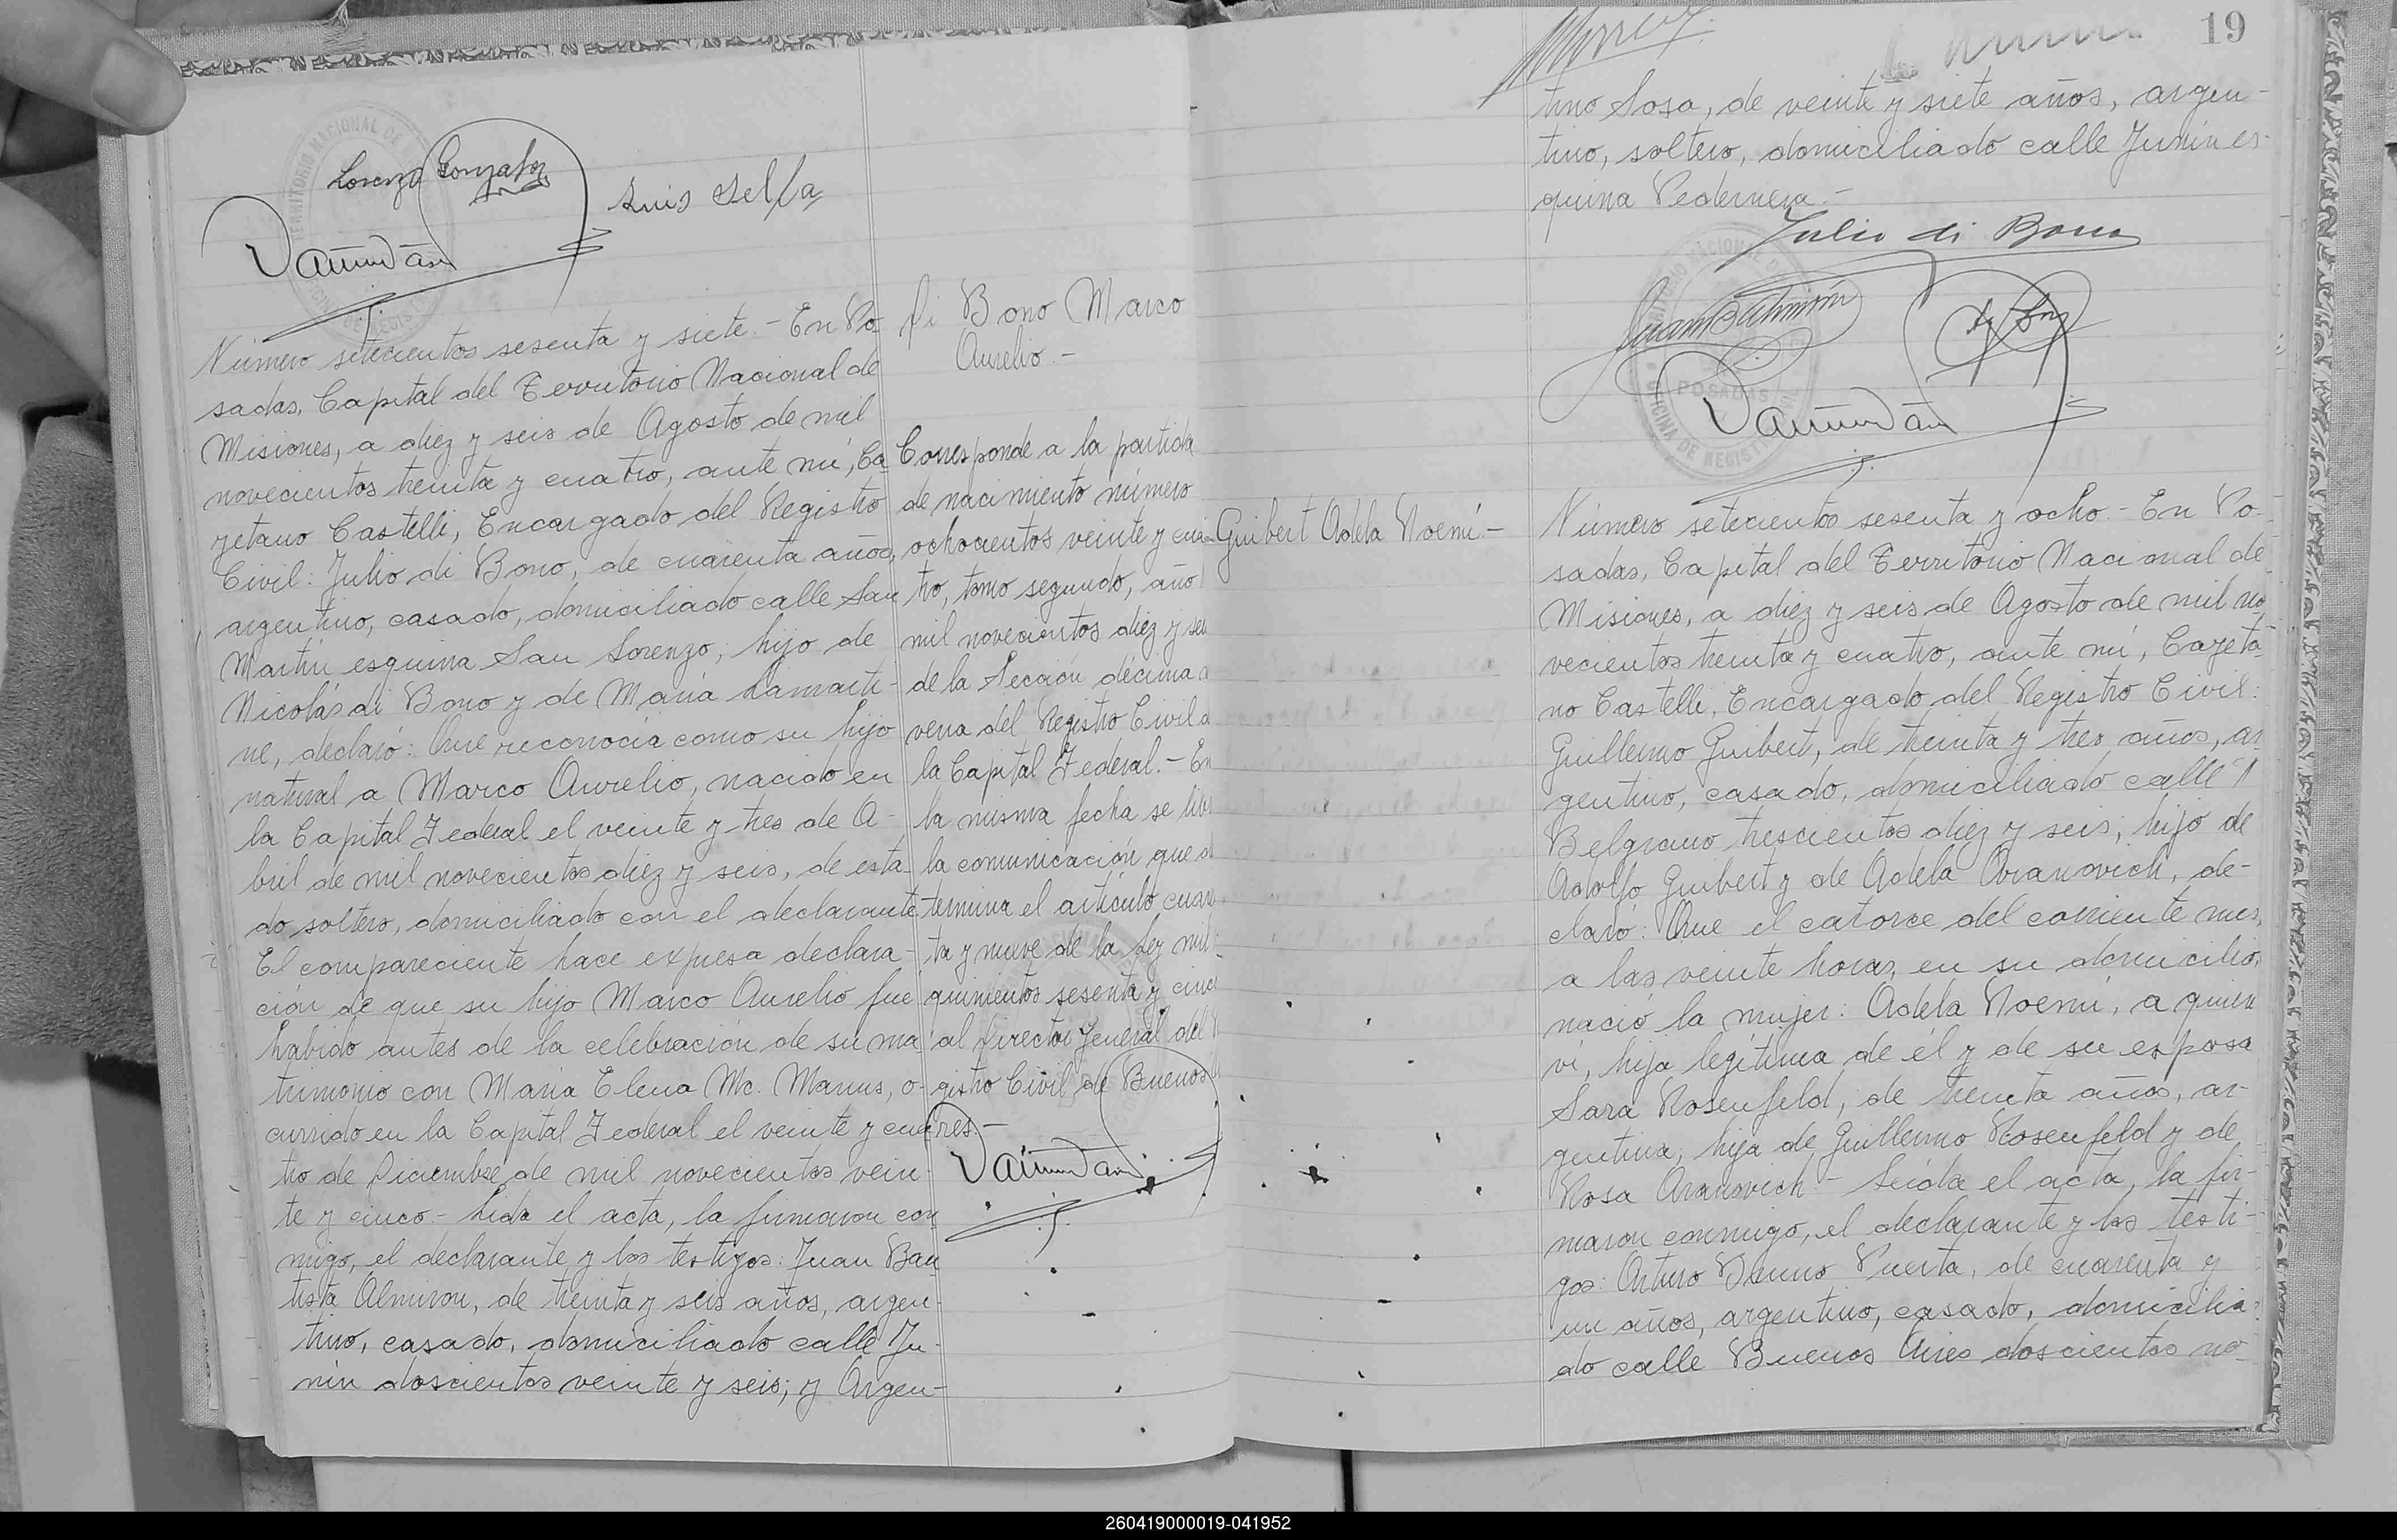 Lorenzo Gonzalez
Luis Sella
Número setecientos sesenta y siete.- En Po
sadas, Capital del Territorio Nacional de
Misiones, a diez y seis de Agosto de mil
novecientos treinta y cuatro, ante mí, Ca
yetano Castelli, Encargado del Registro
Civil: Julio di Bono, de cuarenta años,
argentino, casado, domiciliado calle San
Martín esquina San Lorenzo; hijo de
Nicolás di Bono y de María Lamarti-
ne, declaró: Que reconocía como su hijo
natural a Marco Aurelio, nacido en
la Capital Federal el veinte y tres de A-
bril de mil novecientos diez y seis, de esta
do soltero, domiciliado con el declarante.
El compareciente hace expresa declara-
ción de que su hijo Marco Aurelio fué
habido antes de la celebración de su ma
trimonio con María Elena Mc. Manus, o-
currido en la Capital Federal el veinte y cua
tro de Diciembre de mil novecientos vein-
te y cinco.- Leída el acta, la firmaron con
migo, el declarante y los testigos: Juan Bau
tista Almiron, de treinta y seis años, argen-
tino, casado, domiciliado calle Ju-
nín doscientos veinte y seis; y Argen-
Di Bono Marco
Aurelio.-
Corresponde a la partida
de nacimiento número
ochocientos veinte y cua
tro, tomo segundo, año
mil novecientos diez y seis
de la Sección décima
vena del Registro Civil d
la Capital Federal.- En
la misma fecha se lib
la comunicación que d
termina el artículo cuar
ta y nueve de la Ley mil
quinientos sesenta y cinco
al Director General del
gistro Civil de Buenos
res.-
19
tino Sosa, de veinte y siete años, argen-
tino, soltero, domiciliado calle Junín es-
quina Pedernera.-
Julio di Bono
Juan B Almirón
POSADAS
Guibert Adela Noemí.-
Número setecientos sesenta y ocho.- En Po-
sadas, Capital del Territorio Nacional de
Misiones, a diez y seis de Agosto de mil no
vecientos treinta y cuatro, ante mí, Cayeta
no Castelli, Encargado del Registro Civil:
Guillermo Guibert, de treinta y tres años, ar
gentino, casado, domiciliado calle
Belgrano trescientos diez y seis; hijo de
Adolfo Guibert y de Adela Aranovich, de-
claró: Que el catorce del corriente mes,
a las veinte horas, en su domicilio,
nació la mujer: Adela Noemí, a quien
ví, hija legítima de él y de su esposa
Sara Rosenfeld, de treinta años, ar-
gentina; hija de Guillermo Rosenfeld y de
Rosa Aranovich.- Leída el acta, la fir-
maron conmigo, el declarante y los testi-
gos: Arturo Bruno Puerta, de cuarenta y
un años, argentino, casado, domicilia-
do calle Buenos Aires doscientos no-
260419000019-041952